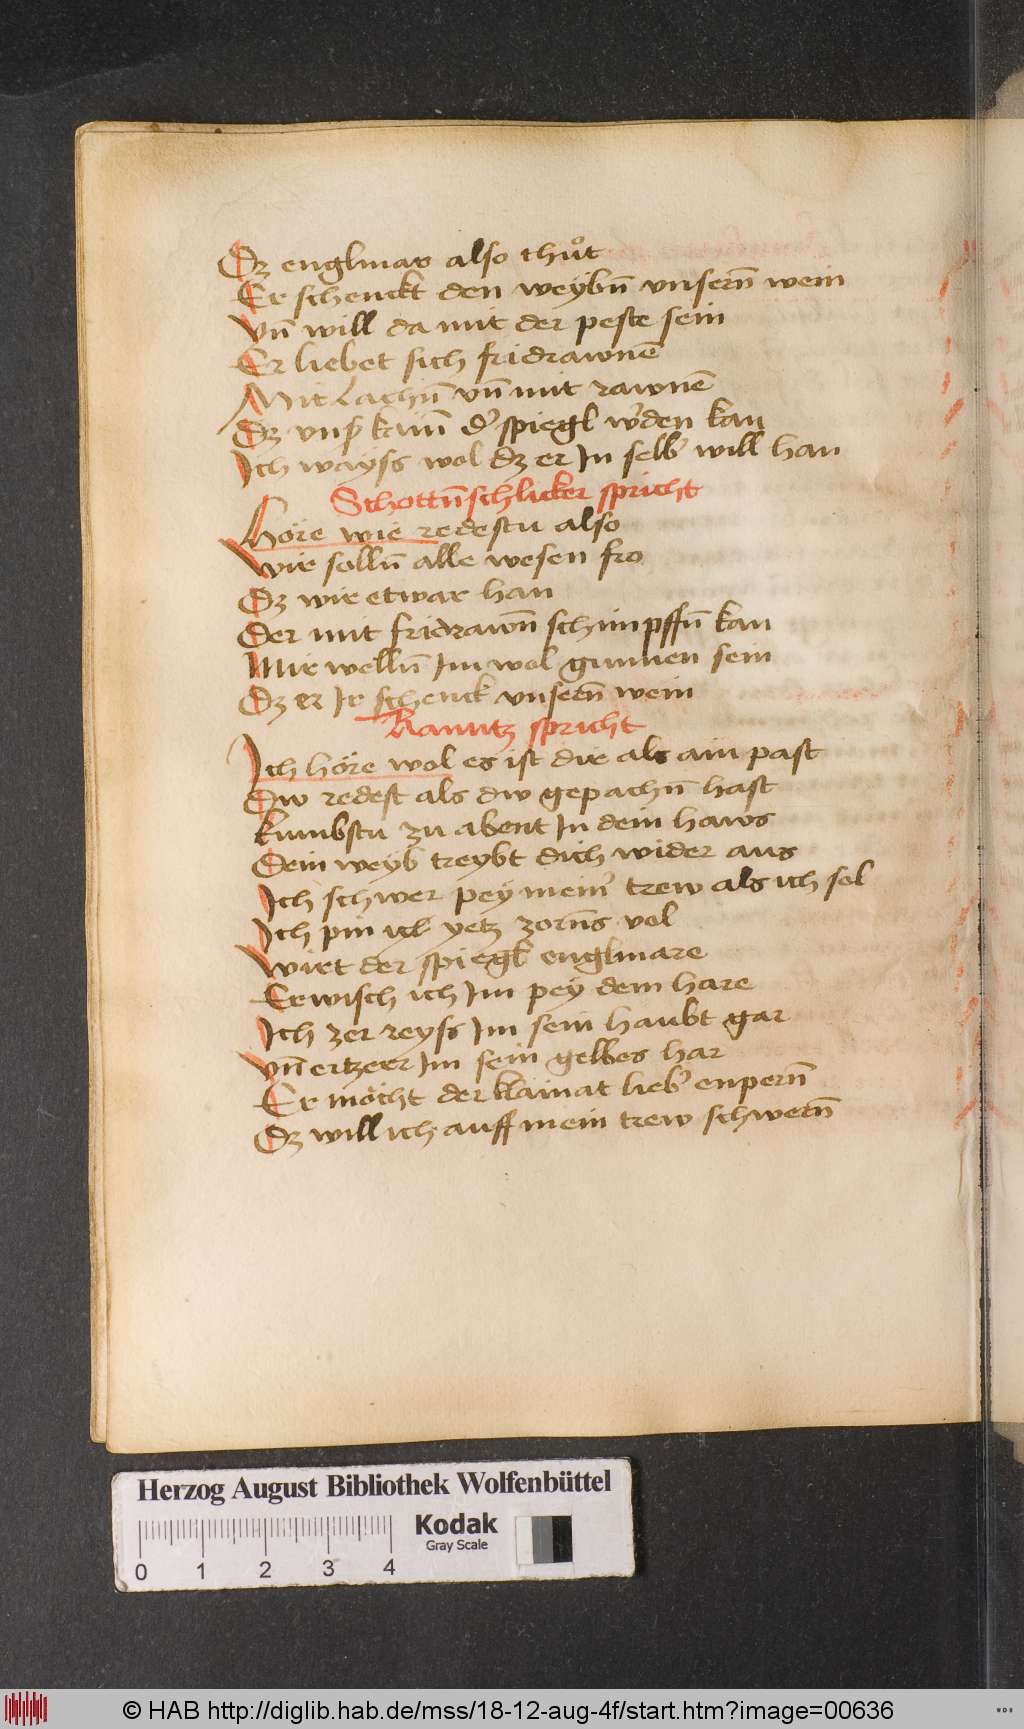 Dz englmar also thůt
Er schenckt den weybn̄ vnsern̄ wein
Vn̄ will da mit der peste sein
Er liebet sich fridrawnē
Mit Lachn̄ vn̄ mit rawnē
Dz vnß kainˉ dˀ spiegl wˀden kan
Ich wayss wol dz er In selbˀ will han
Schottn̄schlicker spricht
Höre wie redestu also
Wir solln̄ alle wesen fro
Dz wir etwar han
Der mit fridrawn̄ schimpffn̄ kan
Mir welln̄ Im wol gunnen sein
Dz er Ir schenck vnsern̄ wein
Ranntz spricht
Ich höre wol es ist dir als ain past
Dw redest als dw gepachn̄ hast
kumbstu zu abent In dein haws
Dein weyb treybt dich wider aus
Ich schwer pey meinˀ trew als ich sol
Ich pin yetz zorn̄s vol
Wirt der spiegl englmare
Erwisch ich Im pey dem hare
Ich zer reyss Im sein haubt gar
Vn̄ ertzerr Im sein gelbes har
Er möcht der klainat liebˀ enpern̄
Dz will ich auff mein trew schwern̄
Herzog August Bibliothek Wolfenbüttel
Kodak
Gray Scale
0 1 2 3 4
© HAB http://diglib.hab.de/mss/18-12-aug-4f/start.htm?image=00636